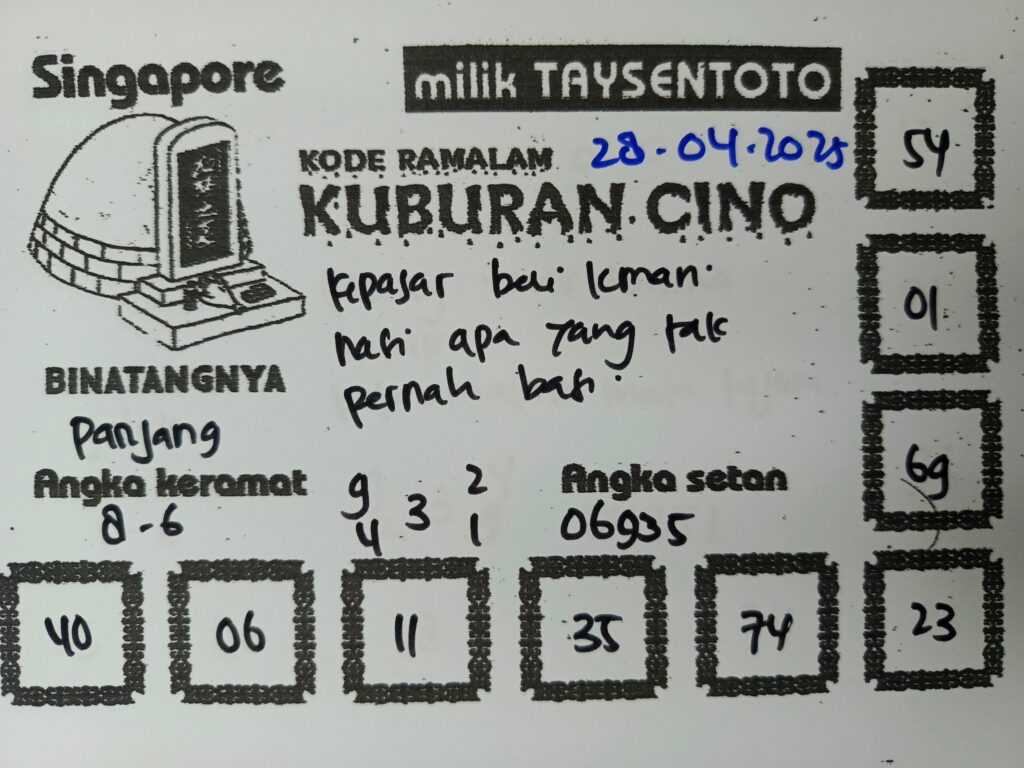 Singapore
milik TAYSENTOTO
28.04.2025
KODE RAMALAM
KUBURAN.CINO
kepasar beli leman
nasi apa yang tak
pernah basi
BINATANGNYA
Panjang
Angka keramat
8-6
9 2
4 3 1
Angka setan
06935
54
01
69
23
40 06 11 35 74